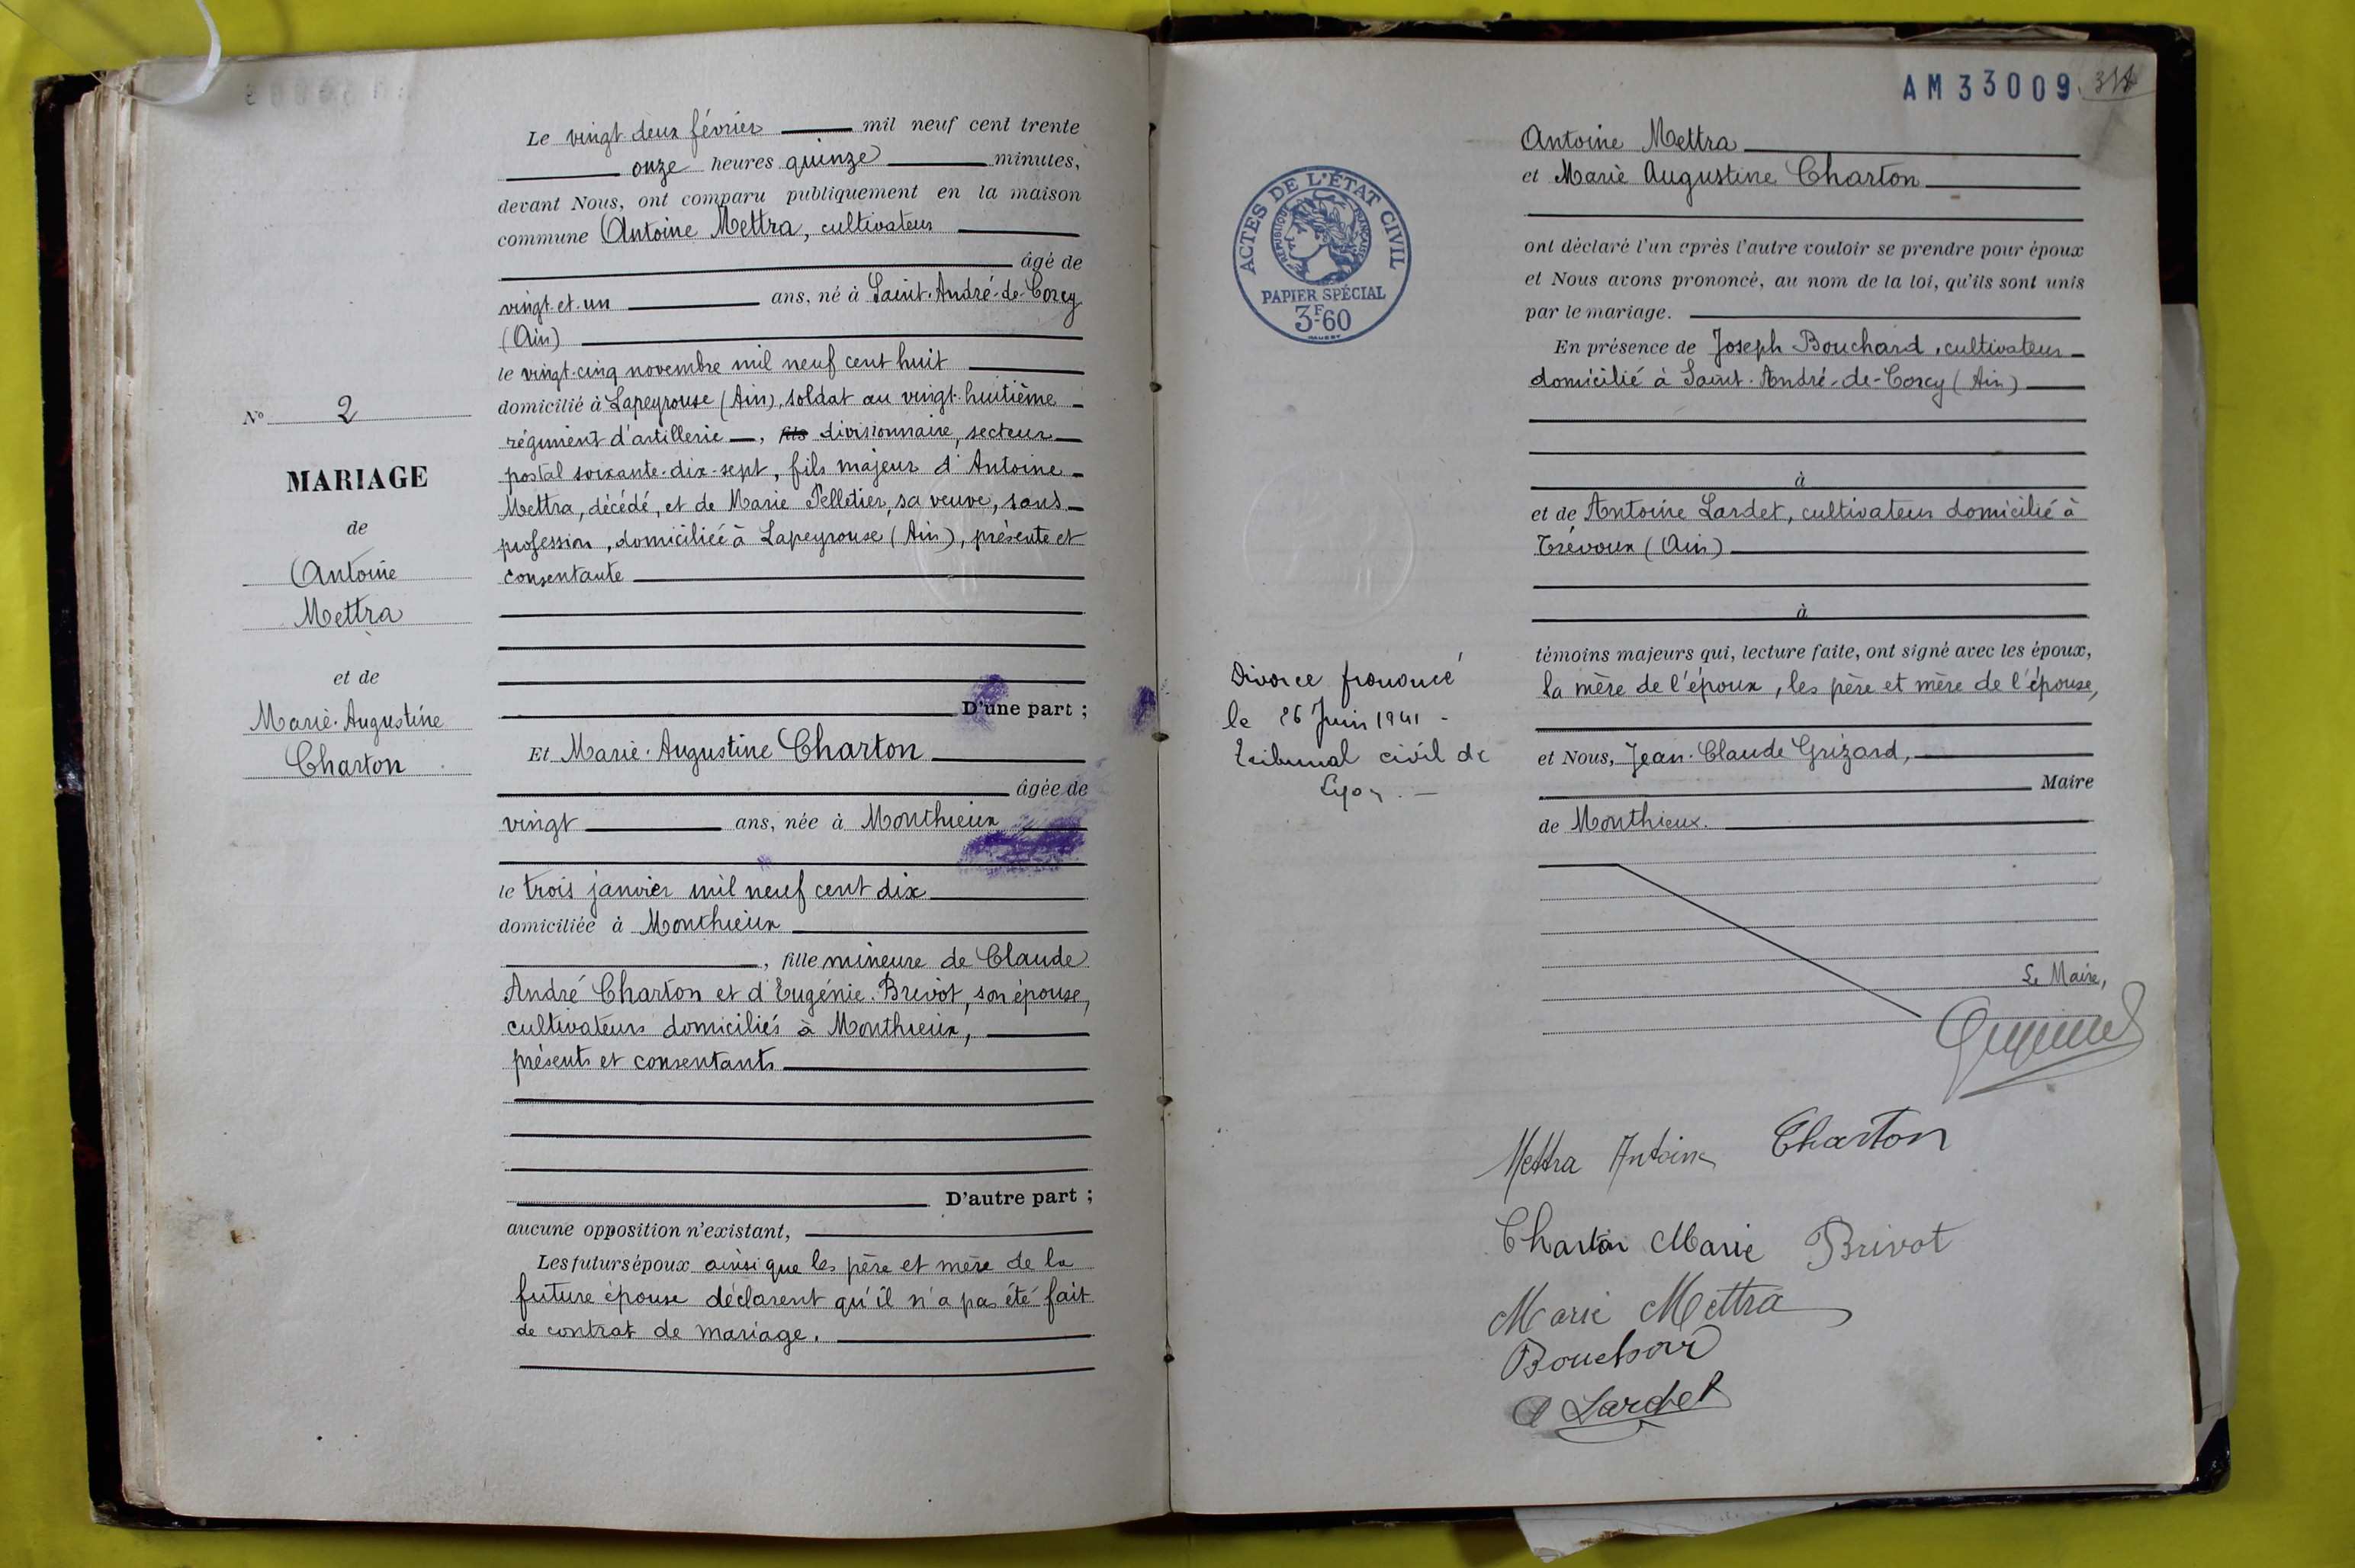 Le vingt-deux février mil neuf cent trente
onze heures quinze minutes,
devant Nous, ont comparu publiquement en la maison
commune Antoine Mettra, cultivateur
âgé de
vingt-et-un ans, né à Saint-André-de-Corcy
(Ain)
le vingt-cinq novembre mil neuf cent huit
domicilié à Lapeyrouse (Ain), soldat au vingt-huitième
régiment d'artillerie, fils divisionnaire, secteur
postal soixante-dix-sept, fils majeur d'Antoine
Mettra, décédé, et de Marie Pelletier, sa veuve, sans
profession, domiciliée à Lapeyrouse (Ain), présente et
consentante
D'une part ;
Et Marie-Augustine Charton
âgée de
vingt ans, née à Monthieux
le trois janvier mil neuf cent dix
domiciliée à Monthieux
, fille mineure de Claude
André Charton et d'Eugénie Brevot, son épouse,
cultivateurs domiciliés à Monthieux,
présents et consentants
D'autre part ;
aucune opposition n'existant,
Les futurs époux ainsi que les père et mère de la
future épouse déclarent qu'il n'a pas été fait
de contrat de mariage.
N° 2
MARIAGE
de
Antoine
Mettra
et de
Marie-Augustine
Charton
AM33009
Antoine Mettra
et Marie Augustine Charton
ont déclaré l'un après l'autre vouloir se prendre pour époux
et Nous avons prononcé, au nom de la loi, qu'ils sont unis
par le mariage.
En présence de Joseph Bouchard, cultivateur
domicilié à Saint-André-de-Corcy (Ain)
à
et de Antoine Lardet, cultivateur domicilié à
Trévoux (Ain)
à
témoins majeurs qui, lecture faite, ont signé avec les époux,
la mère de l'époux, les père et mère de l'épouse,
et Nous, Jean-Claude Grizard,
Maire
de Monthieux.
Le Maire,
Mettra Antoine Charton
Charton Marie Brivot
Marie Mettra
Bouchard
A Lardet
ACTES DE L'ÉTAT CIVIL
RÉPUBLIQUE FRANÇAISE
PAPIER SPÉCIAL
3F-60
Divorce prononcé
le 26 Juin 1941 -
Tribunal civil de
Lyon. -